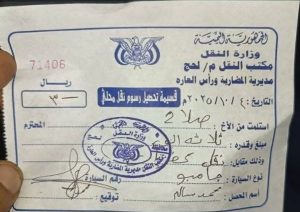 الجمهورية اليمنية
وزارة النقل
مكتب النقل م/ لحج
مديرية المضاربة ورأس العارة
71406
ريال
قسيمة تحصيل رسوم نقل محلية
التاريخ:
استلمت من الأخ: صلاح المحترم
مبلغ وقدره: ثلاثة
وذلك مقابل: نقل
نوع السيارة: رقم السيارة
اسم المحصل: محمد سالم التوقيع
وزارة النقل
مكتب النقل مديرية المضاربة ورأس العارة